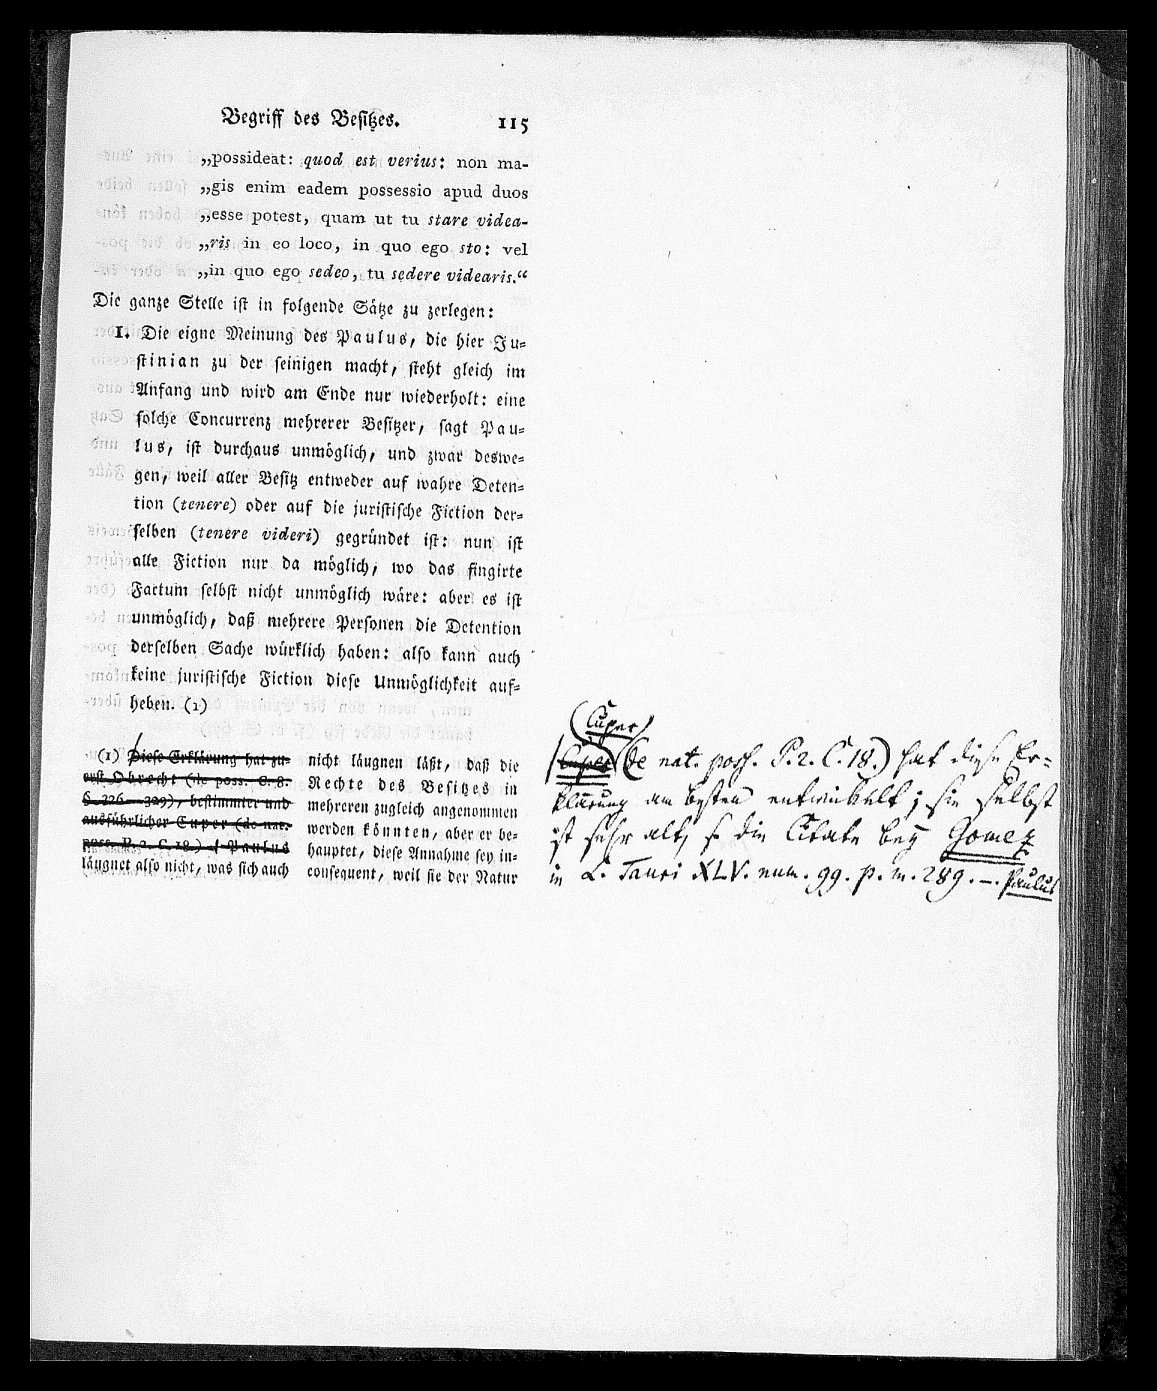 Begriff des Besitzes. 115
„possideat: quod est verius: non ma-
„gis enim eadem possessio apud duos
„esse potest, quam ut tu stare videa-
„ris in eo loco, in quo ego sto: vel
„in quo ego sedeo, tu sedere videaris.“
Die ganze Stelle ist in folgende Sätze zu zerlegen:
I. Die eigne Meinung des Paulus, die hier Ju-
stinian zu der seinigen macht, steht gleich im
Anfang und wird am Ende nur wiederholt: eine
solche Concurrenz mehrerer Besitzer, sagt Pau-
lus, ist durchaus unmöglich, und zwar deswe-
gen, weil aller Besitz entweder auf wahre Deten-
tion (tenere) oder auf die juristische Fiction der-
selben (tenere videri) gegründet ist: nun ist
alle Fiction nur da möglich, wo das fingirte
Factum selbst nicht unmöglich wäre: aber es ist
unmöglich, daß mehrere Personen die Detention
derselben Sache würklich haben: also kann auch
keine juristische Fiction diese Unmöglichkeit auf-
heben. (1)
(1) Diese Erklärung hat zu-
erst Obrecht (de poss. C. 8.
§. 326—329), bestimmter und
ausführlicher Cuper (de nat.
poss. P. 2. C. 18.) Paulus
läugnet also nicht, was sich auch
nicht läugnen läßt, daß die
Rechte des Besitzes in
mehreren zugleich angenommen
werden könnten, aber er be-
hauptet, diese Annahme sey in-
consequent, weil sie der Natur
(Cuper)
Cuper (de nat. poss. P. 2. C. 18.) hat diese Er-
klärung am besten entwickelt; sie selbst
ist sehr alt, s. die Citate bey Gomez
in L. Tauri XLV. num. 99. p. m. 289. —. Paulus